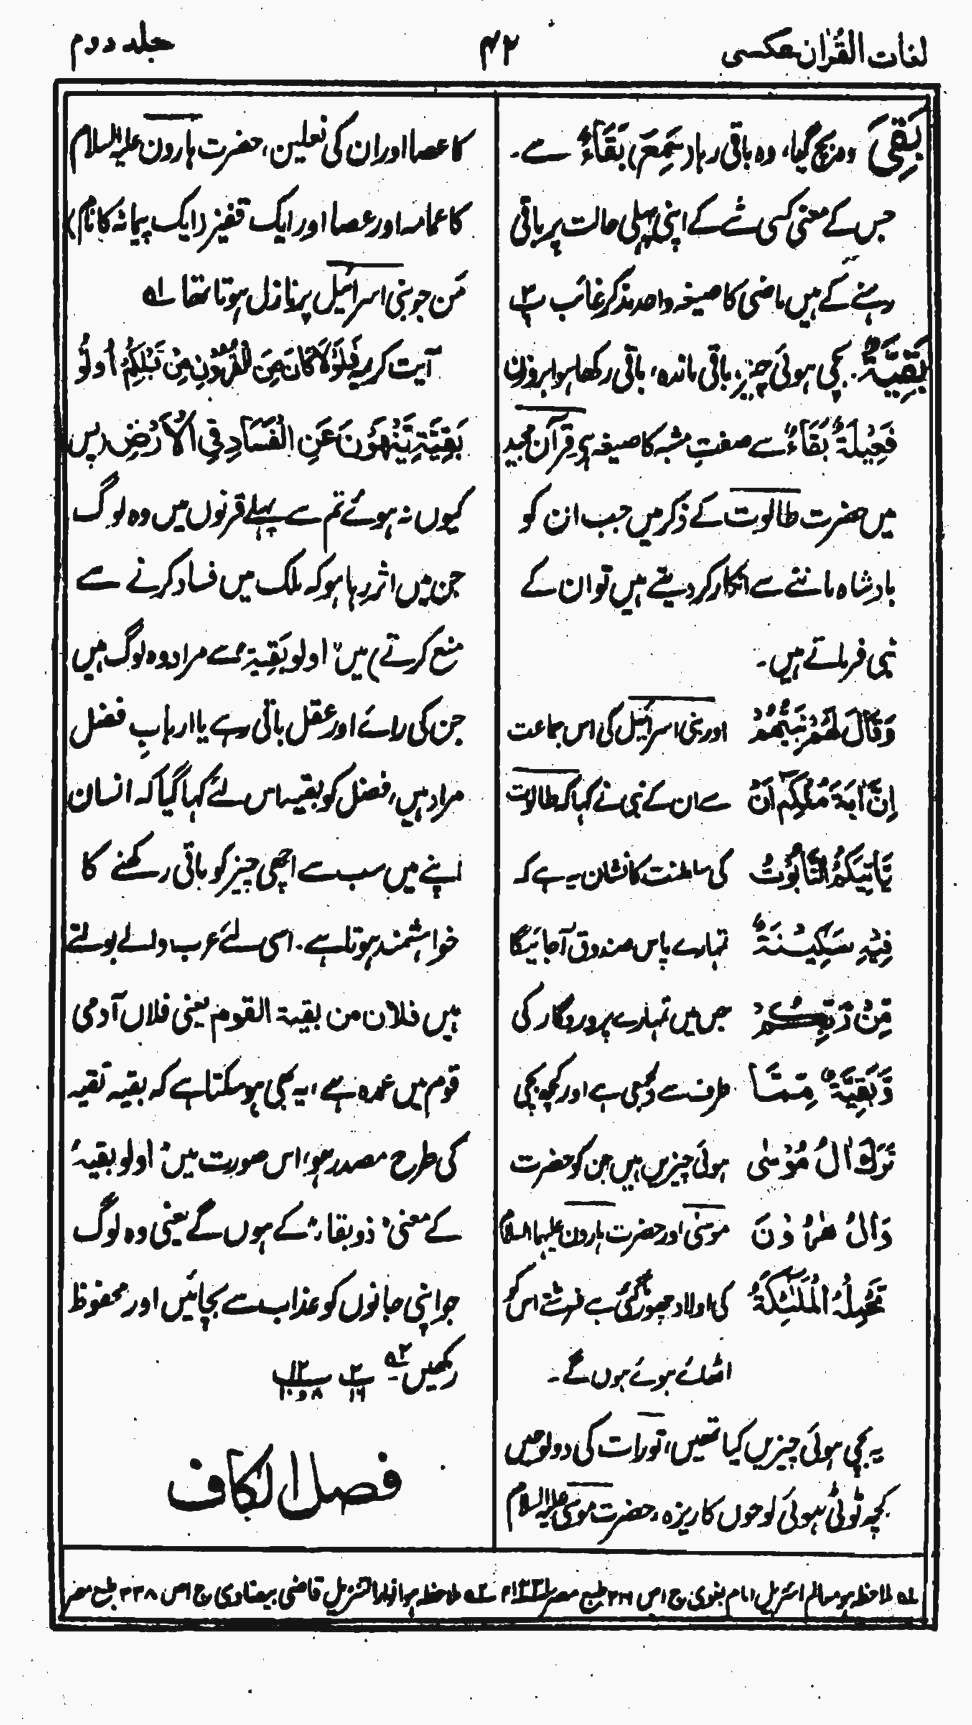 لغات القرآن عکسی ۴۲ جلد دوم
بَقِیَ وہ بچ گیا، وہ باقی رہا (سَمِعَ) بَقَاءٌ سے۔
جس کے معنی کسی شے کے اپنی پہلی حالت پر باقی
رہنے کے ہیں ماضی کا صیغہ واحد مذکر غائب پ۳
بَقِیَّةٌ۔ بچی ہوئی چیز، باقی ماندہ، باقی رکھا ہوا بروزن
فَعِیْلَةٌ بَقَاءٌ سے صفتِ مشبہ کا صیغہ ہے قرآن مجید
میں حضرت طالوت کے ذکر میں جب ان کو
بادشاہ ماننے سے انکار کر دیتے ہیں تو ان کے
نبی فرماتے ہیں۔
وَقَالَ لَهُمْ نَبِیُّهُمْ اور بنی اسرائیل کی اس جماعت
اِنَّ اٰیَةَ مُلْکِهٖ اَنْ سے ان کے نبی نے کہا کہ طالوت
یَّاْتِیَکُمُ التَّابُوْتُ کی سلطنت کا نشان یہ ہے کہ
فِیْهِ سَکِیْنَةٌ تمہارے پاس صندوق آجائیگا
مِّنْ رَّبِّکُمْ جس میں تمہارے پروردگار کی
وَبَقِیَّةٌ مِّمَّا طرف سے دلجمعی ہے اور کچھ بچی
تَرَکَ اٰلُ مُوْسٰی ہوئی چیزیں ہیں جن کو حضرت
وَاٰلُ هٰرُوْنَ موسٰی اور حضرت ہارون علیہما السلام
تَحْمِلُهُ الْمَلٰٓئِکَةُ کی اولاد چھوڑ گئی ہے فرشتے اس کو
اٹھائے ہوئے ہوں گے۔
یہ بچی ہوئی چیزیں کیا تھیں، تورات کی دو لوحیں
کچھ ٹوٹی ہوئی لوحوں کا ریزہ، حضرت موسٰی علیہ السلام
کا عصا اور ان کی نعلین، حضرت ہارون علیہ السلام
کا عمامہ اور عصا اور ایک قفیز (ایک پیمانہ کا نام)
مَن جو بنی اسرائیل پر نازل ہوتا تھا ؎۱
آیت کریمہ فَلَوْلَا کَانَ مِنَ الْقُرُوْنِ مِنْ قَبْلِکُمْ اُولُوْ
بَقِیَّةٍ یَّنْهَوْنَ عَنِ الْفَسَادِ فِی الْاَرْضِ (پس
کیوں نہ ہوئے تم سے پہلے قرنوں میں وہ لوگ
جن میں اثر رہا ہو کہ ملک میں فساد کرنے سے
منع کرتے) میں "اولو بَقِیۃ" سے مراد وہ لوگ ہیں
جن کی رائے اور عقل باقی رہے یا اربابِ فضل
مراد ہیں، فضل کو بقیہ اس لئے کہا گیا کہ انسان
اپنے میں سب سے اچھی چیز کو باقی رکھنے کا
خواہشمند ہوتا ہے۔ اسی لئے عرب والے بولتے
ہیں فلان من بقیۃ القوم یعنی فلاں آدمی
قوم میں عمدہ ہے، یہ بھی ہو سکتا ہے کہ بقیہ تقیہ
کی طرح مصدر ہو، اس صورت میں "اولو بقیۂ"
کے معنی "ذو بقاء" کے ہوں گے یعنی وہ لوگ
جو اپنی جانوں کو عذاب سے بچائیں اور محفوظ
رکھیں ؎۲۔ پ۲ ۱۶ پ۱۲ ۸ و ۱۰
فصل الکاف
؎۱ ملاحظہ ہو معالم التنزیل امام بغوی ج ۱ ص ۲۲۶ طبع مصر ؎۲ ملاحظہ ہو انوار التنزیل قاضی بیضاوی ج ۱ ص ۳۳۸ طبع مصر